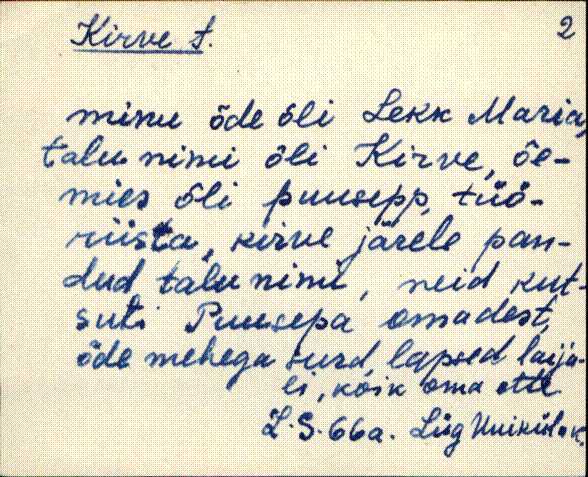 Kirve t.
2
minu õde õli Lekk Maria,
talu nimi õli Kirve, õe-
mies õli puusepp, tüö-
riista, kirve järele pan-
dud talu nimi, neid kut-
suti Puusepa omadest,
õde mehega surd, lapsed laija-
li, kõik oma ette
L.S. 66a. Lüg